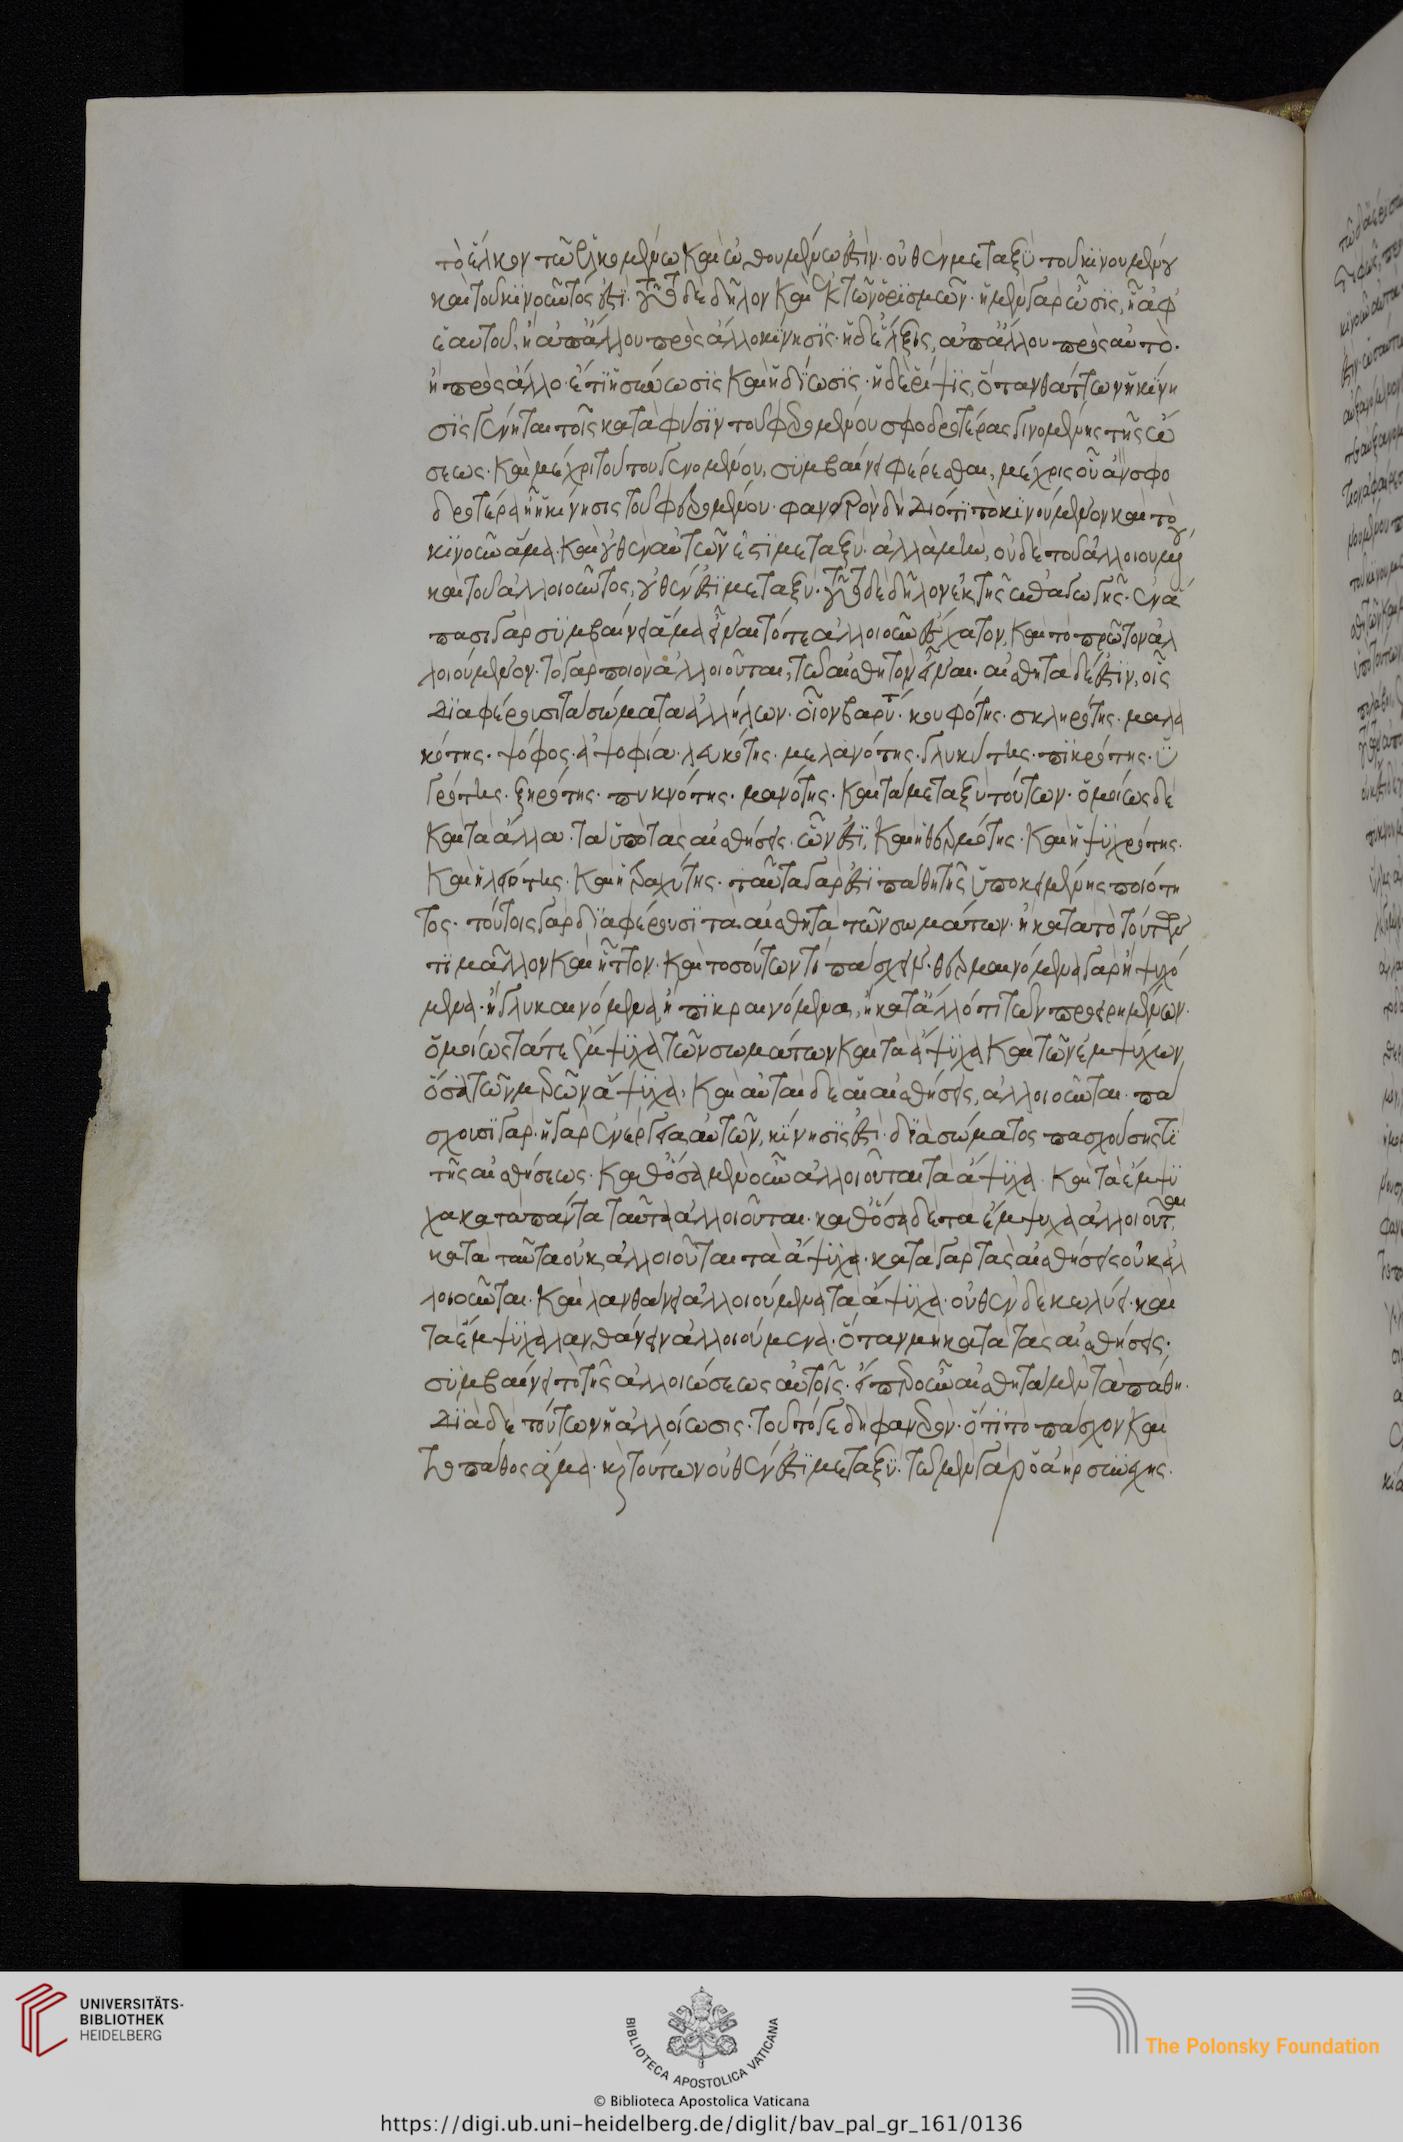 τὸ ἕλκον τῶ ἑλκομένω καὶ ὠθουμένω ἐστίν· οὐθὲν μεταξὺ τοῦ κινουμένου
καὶ τοῦ κινοῦντός ἐστι· τοῦτο δὲ δῆλον καὶ ἐκ τῶν ὁρισμῶν· ἡ μὲν γὰρ ὦσις, ἢ ἀφ'
ἑαυτοῦ, ἢ ἀπ' ἄλλου πρὸς ἄλλο κίνησις· ἡ δ' ἕλξις, ἀπ' ἄλλου πρὸς αὐτὸ·
ἢ πρὸς ἄλλο· ἔτι ἡ σύνωσις καὶ ἡ δίωσις· ἡ δὲ ῥίψις, ὅταν θάττων ἡ κίνη
σις γένηται τῆς κατὰ φύσιν τοῦ φερομένου σφοδροτέρας γινομένης τῆς ὤ
σεως· καὶ μέχρι τούτου γενομένου, συμβαίνει φέρεσθαι, μέχρις οὗ ἂν σφο
δροτέρα ἦ ἡ κίνησις τοῦ φερομένου· φανερὸν δὴ διότι τὸ κινούμενον καὶ τὸ
κινοῦν ἅμα· καὶ οὐθὲν αὐτῶν ἐστὶ μεταξύ· ἀλλὰ μὴν, οὐδὲ τοῦ ἀλλοιουμένου
καὶ τοῦ ἀλλοιοῦντος, οὐθέν ἐστι μεταξύ· τοῦτο δὲ δῆλον ἐκ τῆς ἐπαγωγῆς· ἐν ἅ
πασι γὰρ συμβαίνει ἅμα εἶναι τό τε ἀλλοιοῦν ἔσχατον, καὶ τὸ πρῶτον ἀλ
λοιούμενον· τὸ γὰρ ποιὸν ἀλλοιοῦται, τῶ αἰσθητὸν εἶναι· αἰσθητὰ δέ ἐστιν, οἷς
διαφέρουσι τὰ σώματα ἀλλήλων· οἷον βαρύτης· κουφότης· σκληρότης· μαλα
κότης· ψόφος· ἀψοφία· λευκότης· μελανότης· γλυκύτης· πικρότης· ὑ
γρότης· ξηρότης· πυκνότης· μανότης· καὶ τὰ μεταξὺ τούτων· ὁμοίως δὲ
καὶ τὰ ἄλλα· τὰ ὑπὸ τὰς αἰσθήσεις· ὧν ἐστι, καὶ ἡ θερμότης· καὶ ἡ ψυχρότης·
καὶ ἡ λειότης· καὶ ἡ τραχύτης· ταῦτα γάρ ἐστι πάθη τῆς ὑποκειμένης ποιότη
τος· τούτοις γὰρ διαφέρουσι τὰ αἰσθητὰ τῶν σωμάτων· ἢ κατὰ τὸ τούτων
τι μᾶλλον καὶ ἧττον· καὶ τὸ τούτων τι πάσχειν· θερμαινόμενα γὰρ ἢ ψυχό
μενα· ἢ γλυκαινόμενα, ἢ πικραινόμενα, ἢ κατ' ἄλλό τι τῶν προειρημένων·
ὁμοίως τά τε ἔμψυχα τῶν σωμάτων καὶ τὰ ἄψυχα καὶ τῶν ἐμψύχων
ὅσα τῶν μερῶν ἄψυχα, καὶ αὐταὶ δὲ αἱ αἰσθήσεις, ἀλλοιοῦνται· πά
σχουσι γάρ· ἡ γὰρ ἐνέργεια αὐτῶν, κίνησίς ἐστι· διὰ σώματος πασχούσης τι
τῆς αἰσθήσεως· καθ' ὅσα μὲν οὖν ἀλλοιοῦται τὰ ἄψυχα· καὶ τὰ ἔμψυ
χα κατὰ πάντα ταῦτα ἀλλοιοῦται· καθ' ὅσα δὲ τὰ ἔμψυχα ἀλλοιοῦται,
κατὰ ταῦτα οὐκ ἀλλοιοῦται τὰ ἄψυχα· κατὰ γὰρ τὰς αἰσθήσεις οὐκ ἀλ
λοιοῦνται· καὶ λανθάνει ἀλλοιούμενα τὰ ἄψυχα· οὐθὲν δὲ κωλύει· καὶ
τὰ ἔμψυχα λανθάνειν ἀλλοιούμενα· ὅταν μὴ κατὰ τὰς αἰσθήσεις·
συμβαίνει τὸ τῆς ἀλλοιώσεως αὐτοῖς· εἴπερ οὖν αἰσθητὰ μὲν τὰ πάθη·
διὰ δὲ τούτων ἡ ἀλλοίωσις· τοῦτό γε δὴ φανερὸν· ὅτι τὸ πάσχον καὶ
τὸ πάθος ἅμα· καὶ τούτων οὐθέν ἐστι μεταξύ· τῶ μὲν γὰρ ὁ ἀὴρ συνεχής·
UNIVERSITÄTS-
BIBLIOTHEK
HEIDELBERG
BIBLIOTECA APOSTOLICA VATICANA
The Polonsky Foundation
© Biblioteca Apostolica Vaticana
https://digi.ub.uni-heidelberg.de/diglit/bav_pal_gr_161/0136